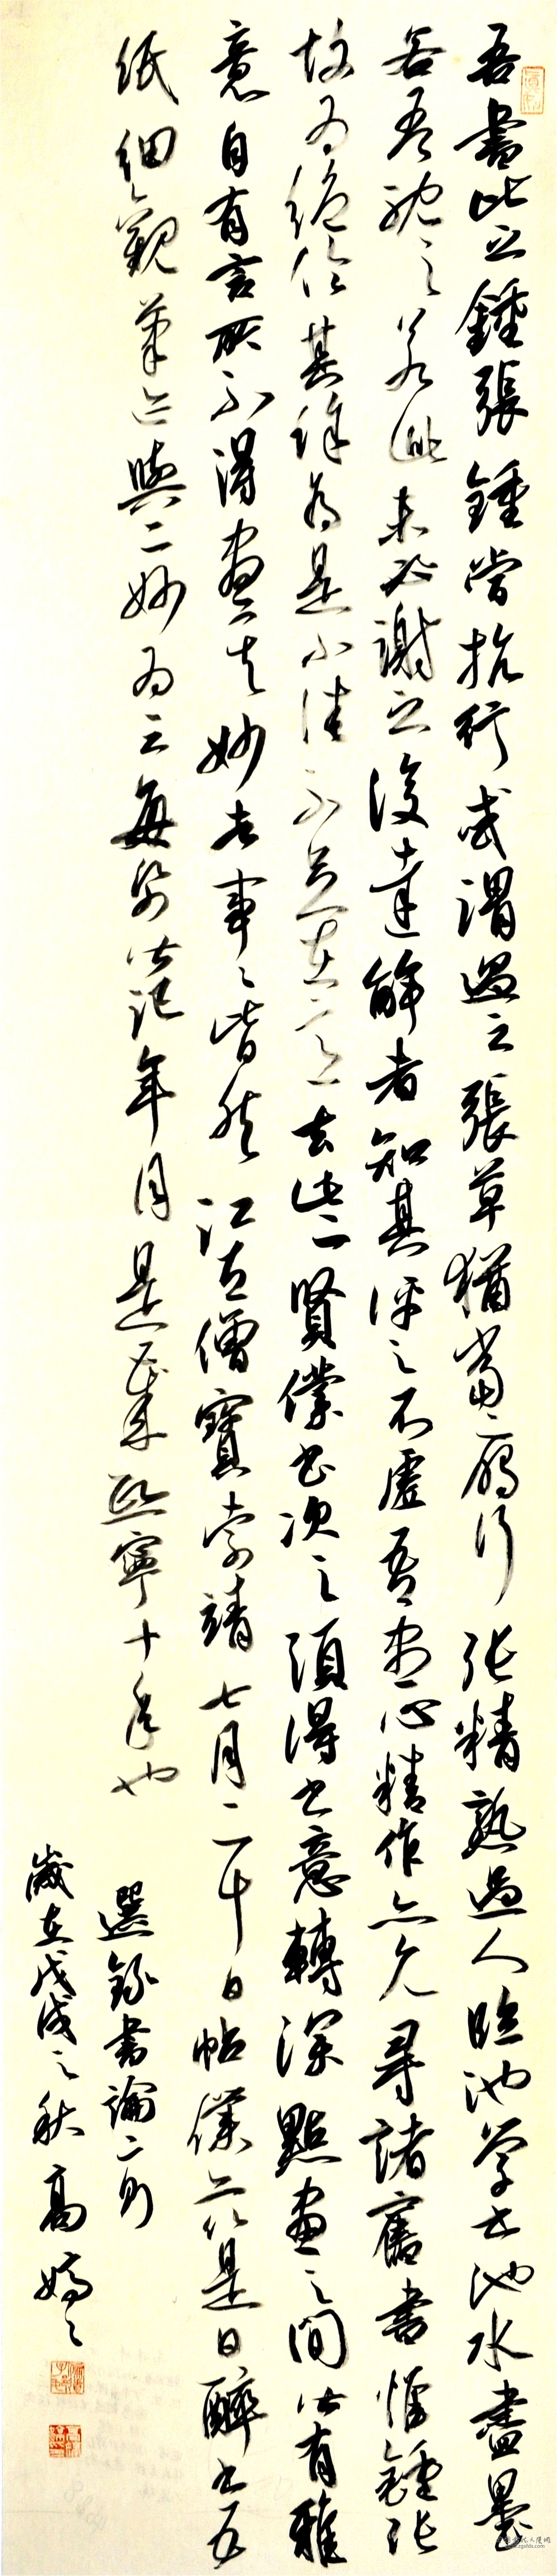 吾書比之鍾張鍾當抗行或謂過之張草猶當雁行張精熟過人臨池學書池水盡墨
若吾耽之若此未必謝之後達解者知其評之不虛吾盡心精作亦久尋諸舊書惟鍾張
故為絕倫其餘為是小佳不足在意去此二賢僕書次之須得書意轉深點畫之間皆有雅
意自有言所不得盡其妙者事〻皆然江左僧寶索靖七月二十日帖僕亦以是日醉書五
紙細觀筆迹與二妙為三每紙皆記年月是歲熙寧十年也
選錄書論二則
歲在戊戌之秋高